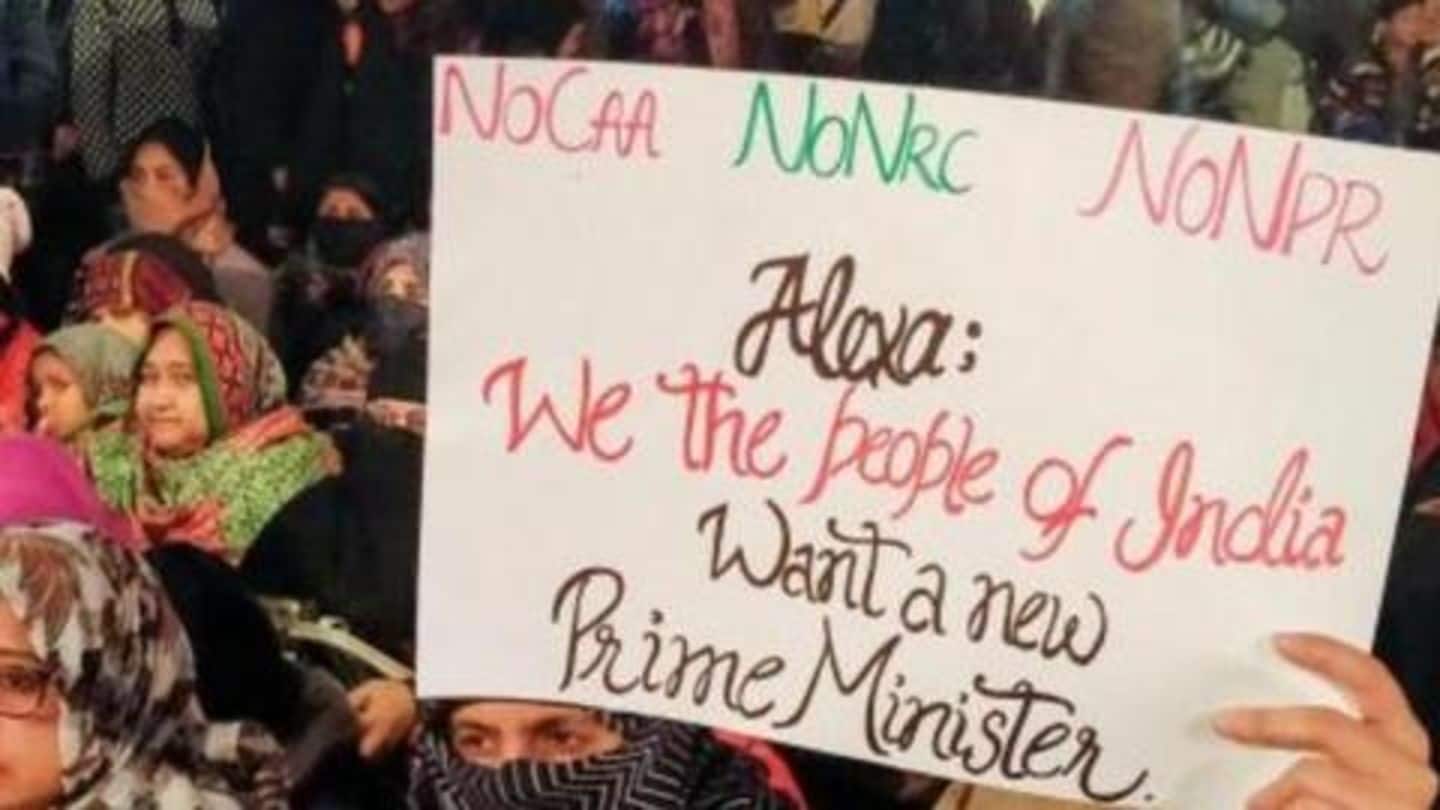 NoCAA NoNRC NoNPR
Alexa:
We the people of India
Want a new
Prime Minister.